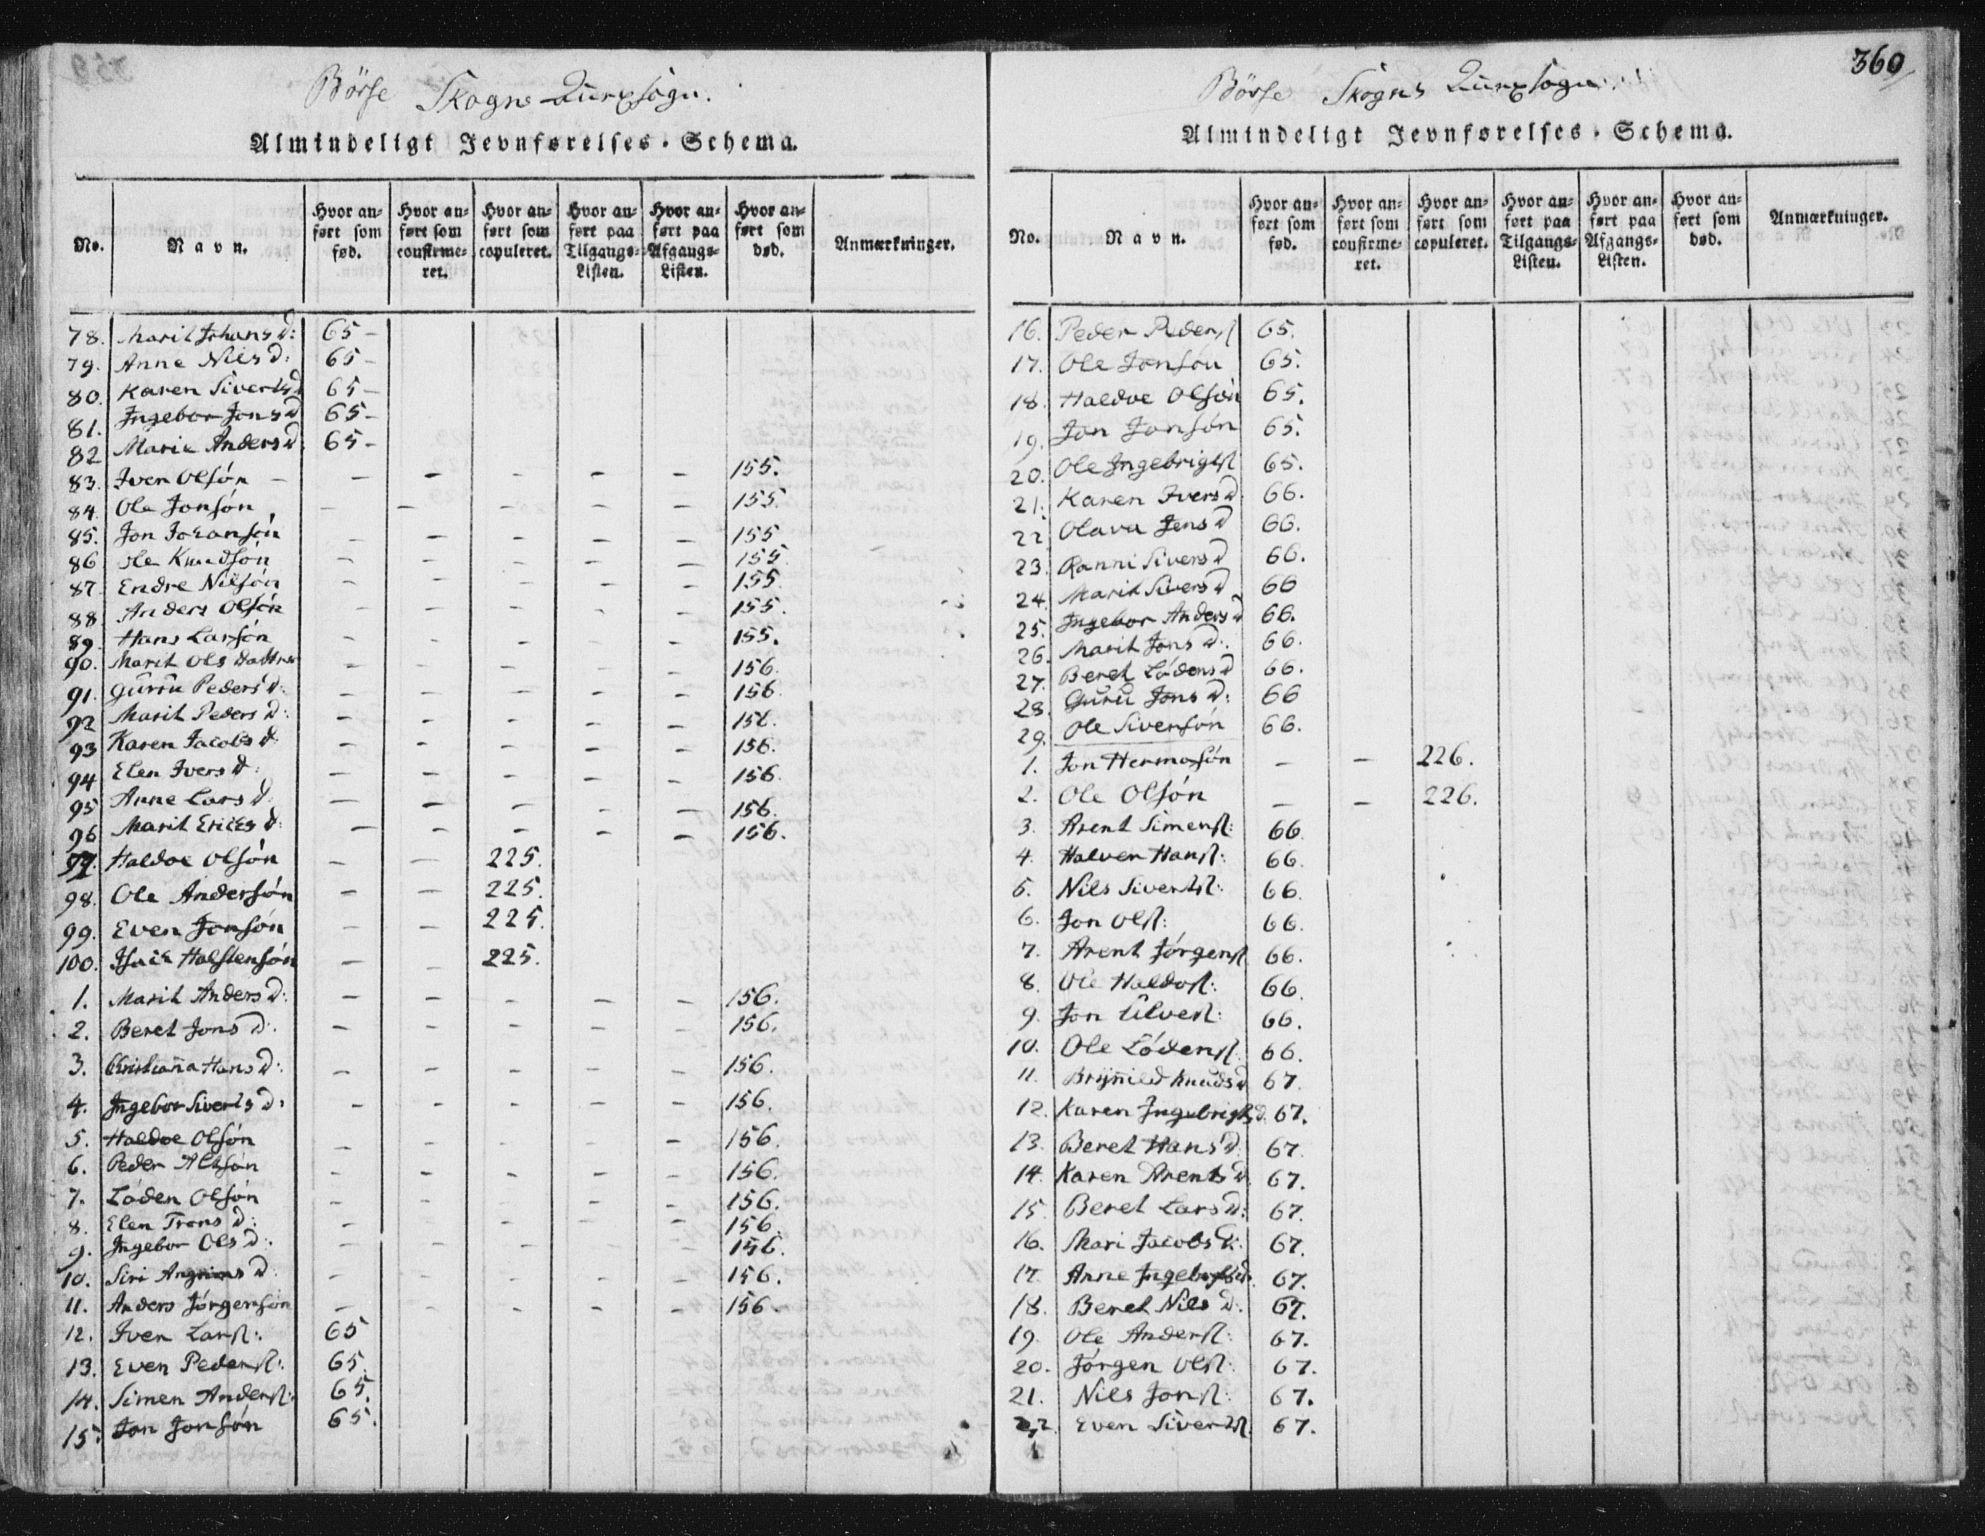 Börse Skogns
Almindeligt Jevnførelses-Schema.
No. Navn. Hvor anført som fød. Hvor anført som confirmeret. Hvor anført som copuleret. Hvor anført paa Tilgangs-Listen. Hvor anført paa Afgangs-Listen. Hvor anført som død. Anmærkninger.
78. Marit Johans d: 65 -
79. Anne Nils d: 65 -
80. Karen Siverts d 65 -
81. Ingebor Jons d 65 -
82 Marie Anders d: 65 -
83. Iver Olsón - - - - - 155.
84. Ole Jonsón - - - - - 155.
85. Jon Johansón - - - - - 155
86 Ole Knudsón - - - - - 155.
87. Endre Nilsón - - - - - 155.
88. Anders Olsón - - - - - 155.
89. Hans Larsón - - - - - 155.
90. Marit Ols datter - - - - - 156.
91. Gŭrŭ Peders d: - - - - - 156
92 Marit Peders d: - - - - - 156.
93 Karen Jacobs d - - - - - 156.
94 Elen Ivers d: - - - - - 156.
95 Anne Lars d. - - - - - 156.
96 Marit Erics d: - - - - - 156.
97. Haldoe Olsón - - 225.
98. Ole Andersón - - 225.
99. Even Jonsón - - 225.
100. Isaik Halstensón - - 225.
1. Marit Anders d: - - - - - 156.
2. Beret Jons d: - - - - - 156.
3. Christiana Hans d: - - - - - 156.
4. Ingebor Siverts d: - - - - - 156.
5. Haldoe Olsón - - - - - 156.
6. Peder Altsón - - - - - 156.
7. Lóden Olsón - - - - - 156.
8. Elen Trons d: - - - - - 156.
9. Ingebor Ols d: - - - - - 156.
10. Siri d: - - - - - 156.
11. Anders Jörgensón - - - - - 156.
12. Iver Lars: 65
13. Even Peders: 65.
14. Simen Anders: 65.
15. Jon Jonsón 65.
360
Börse Skogns
Almindeligt Jevnførelses-Schema.
No. Navn. Hvor anført som fød. Hvor anført som confirmeret. Hvor anført som copuleret. Hvor anført paa Tilgangs-Listen. Hvor anført paa Afgangs-Listen. Hvor anført som død. Anmærkninger.
16. Peder Peders 65.
17. Ole Jonson 65.
18. Haldoe Olsón 65.
19. Jon Jonsón 65.
20. Ole Ingebrigts 65.
21. Karen Ivers d. 66.
22 Olava Jens d 66.
23. Ranni Sivers d 66.
24. Marit Sivers d 66
25. Ingebor Anders d 66.
26. Marit Jons d: 66.
27. Beret Lódens d 66.
28. Gŭrŭ Jons d: 66
29. Ole Siversón 66.
1. Jon Hermosón - - 226.
2. Ole Olsón - - 226.
3. Arent Simens: 66.
4. Halver Hans: 66.
5. Nils Siverts: 66.
6. Jon Ols: 66.
7. Arent Jörgens 66.
8. Ole Haldos: 66.
9. Jon Elves: 66.
10. Ole Lódens: 66.
11. Brÿnild Knuds d 67.
12. Karen Ingebrigts d. 67.
13. Beret Hans d: 67
14. Karen Arents d. 67.
15. Beret Lars d: 67.
16. Mari Jacobs d: 67.
17. Anne 67.
18. Beret Nils d: 67.
19. Ole Anders: 67.
20. Jörgen Ols: 67.
21. Nils Jons: 67.
22. Even Siverts: 67.